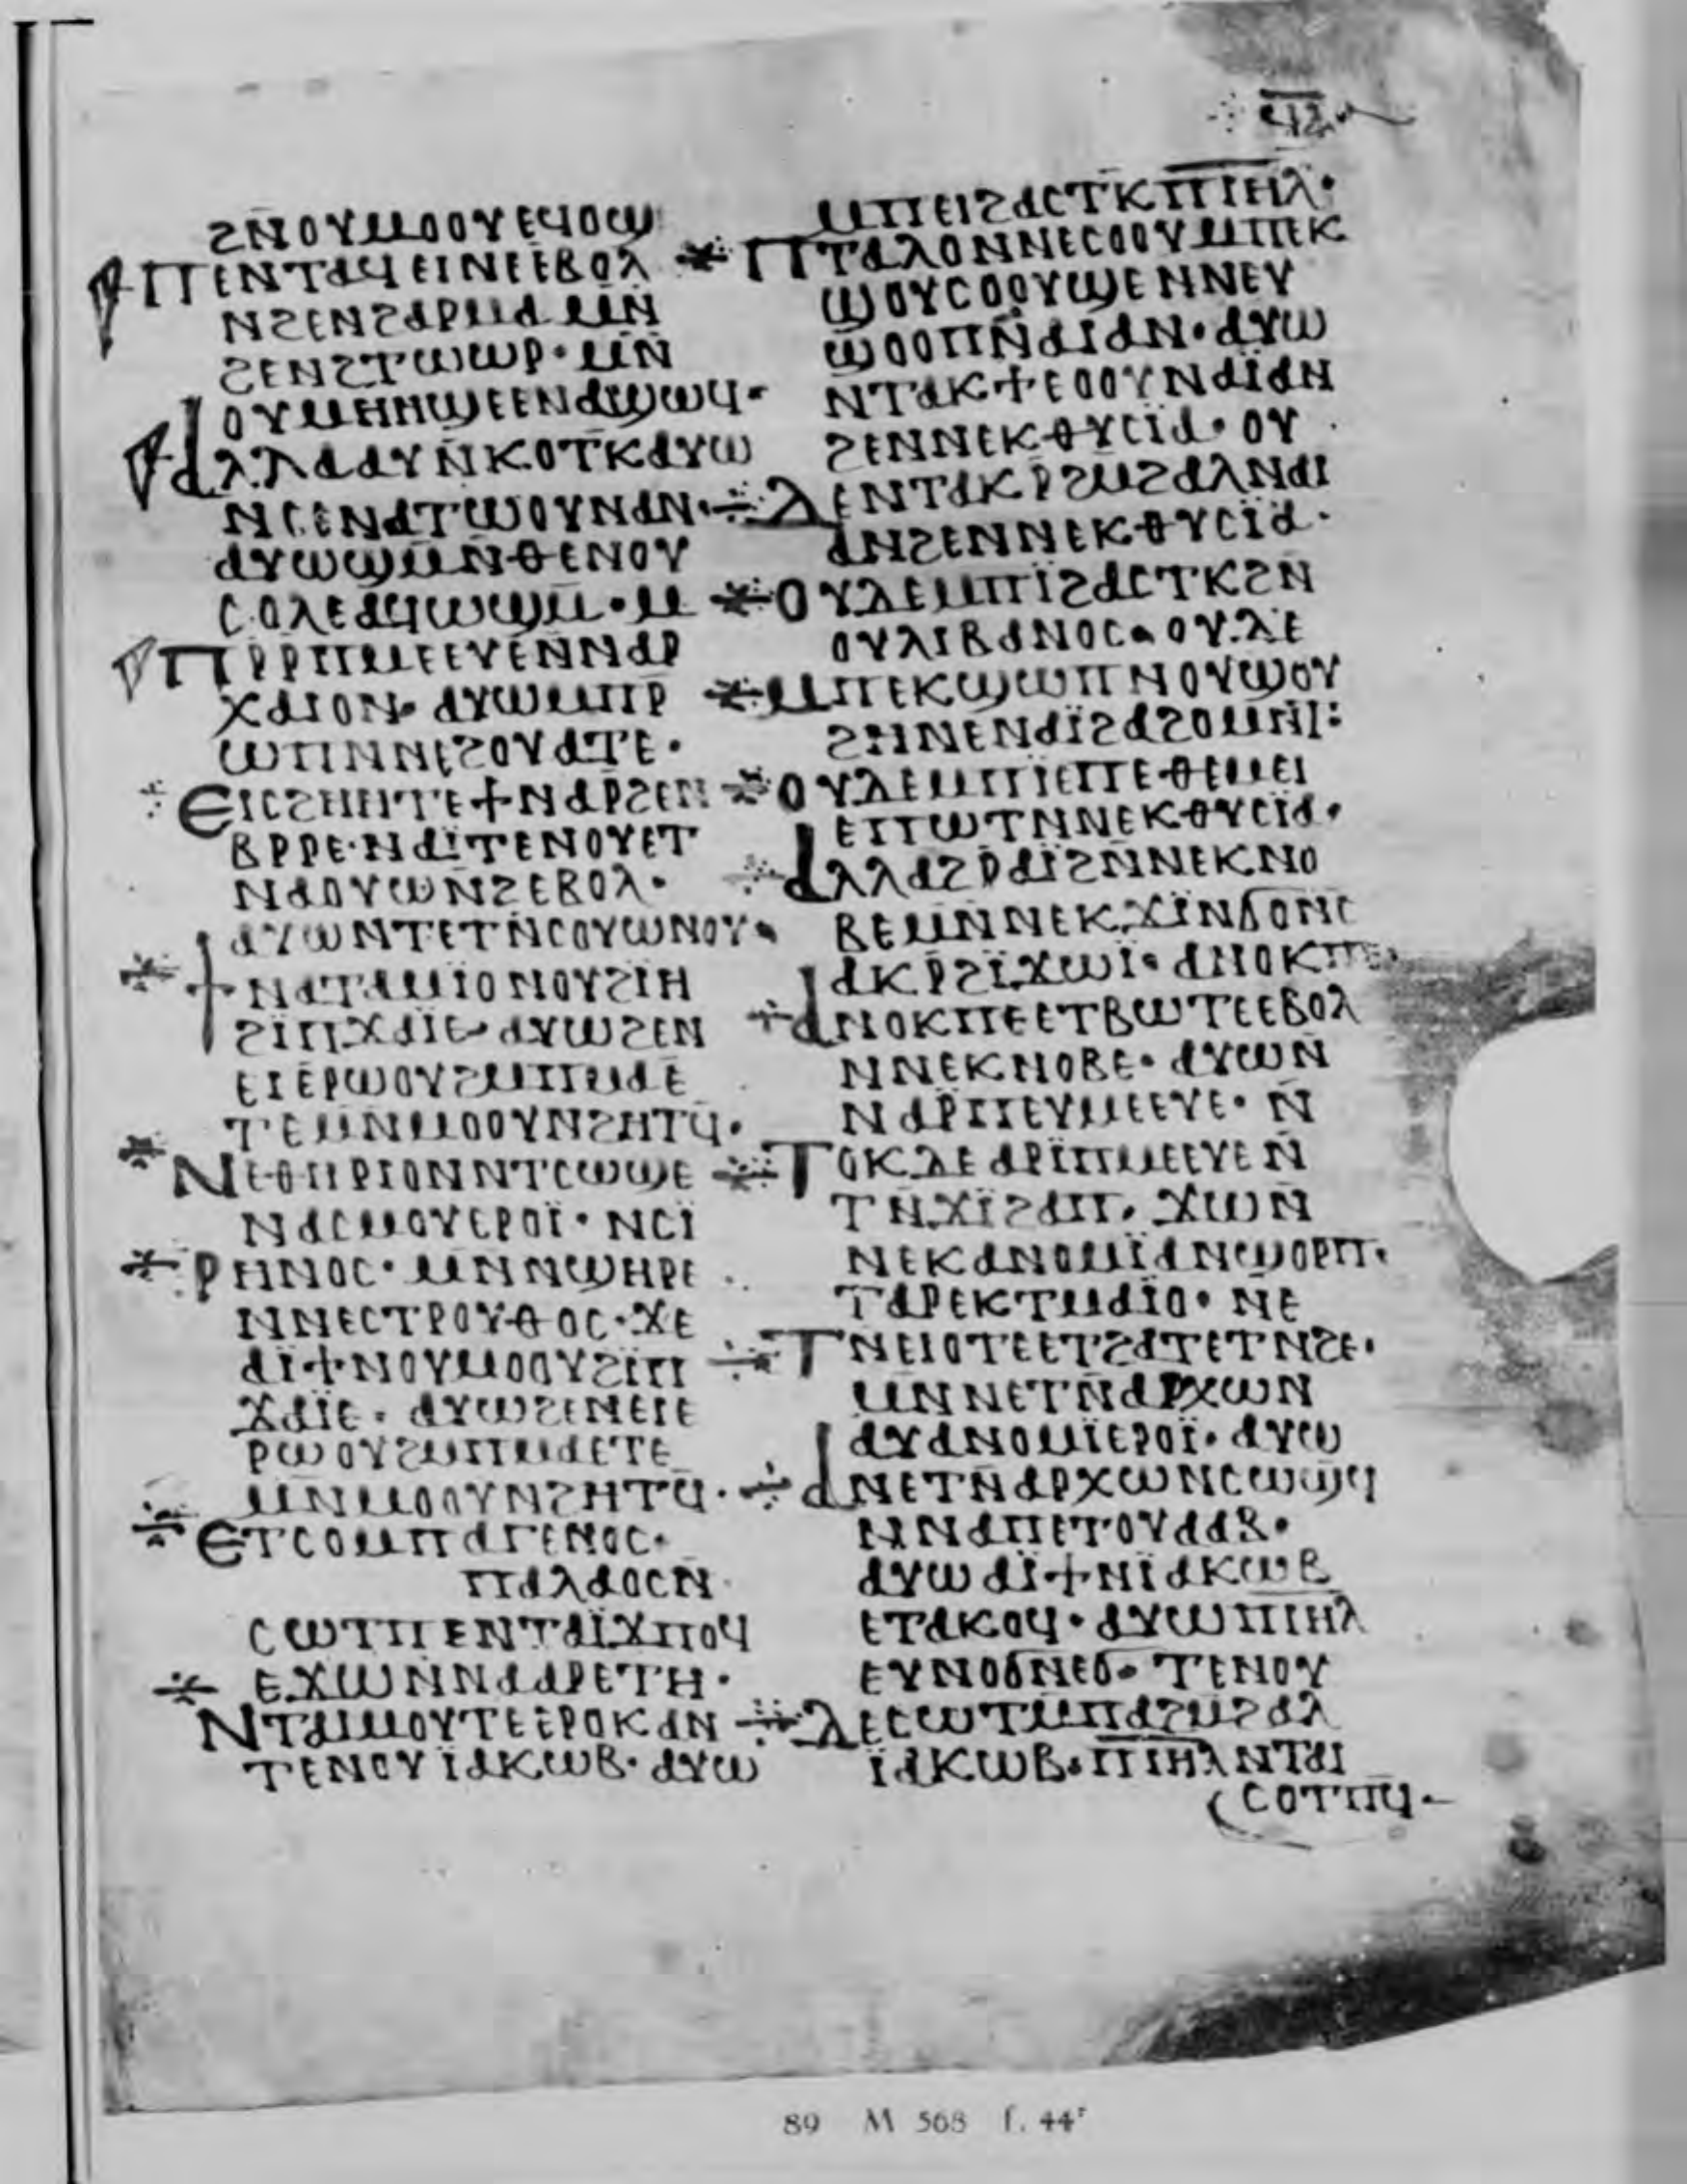 ϥⲍ
ϩⲛⲟⲩⲙⲟⲟⲩⲉϥⲟϣ
ⲡⲉⲛⲧⲁϥⲉⲓⲛⲉⲉⲃⲟⲗ
ⲛϩⲉⲛϩⲁⲣⲙⲁⲙⲛ̄
ϩⲉⲛϩⲧⲱⲱⲣ· ⲙⲛ̄
ⲟⲩⲙⲏⲏϣⲉⲉⲛⲁϣⲱϥ·
ⲁⲗⲗⲁⲁⲩⲛ̄ⲕⲟⲧⲕⲁⲩⲱ
ⲛⲥⲉⲛⲁⲧⲱⲟⲩⲛⲁⲛ·
ⲁⲩⲱϣⲙ̄ⲛ̄ⲑⲉⲛⲟⲩ
ⲥⲟⲗⲉⲁϥⲱϣⲙ̄· ⲙ
ⲡⲣⲣⲡⲙⲉⲉⲩⲉⲛ̄ⲛⲁⲣ
ⲭⲁⲓⲟⲛ· ⲁⲩⲱⲙⲡⲣ
ⲱⲡⲛⲛⲉϩⲟⲩⲁⲧⲉ·
ⲉⲓⲥϩⲏⲏⲧⲉϯⲛⲁⲣϩⲉⲛ
ⲃⲣⲣⲉ·ⲛⲁⲓ̈ⲧⲉⲛⲟⲩⲉⲧ
ⲛⲁⲟⲩⲱⲛϩⲉⲃⲟⲗ·
ⲁⲩⲱⲛⲧⲉⲧⲛ̄ⲥⲟⲩⲱⲛⲟⲩ·
ϯⲛⲁⲧⲁⲙⲓⲟⲛⲟⲩϩⲓⲏ
ϩⲓⲡϫⲁⲓⲉ· ⲁⲩⲱϩⲉⲛ
ⲉⲓⲉⲣⲱⲟⲩϩⲙⲡⲙⲁⲉ
ⲧⲉⲙⲛⲙⲟⲟⲩⲛϩⲏⲧϥ·
ⲛⲉⲑⲏⲣⲓⲟⲛⲛⲧⲥⲱϣⲉ
ⲛⲁⲥⲙⲟⲩⲉⲣⲟⲓ̈· ⲛⲥⲓ̈
ⲣⲏⲛⲟⲥ· ⲙⲛⲛϣⲏⲣⲉ
ⲛⲛⲉⲥⲧⲣⲟⲩⲑⲟⲥ·ϫⲉ
ⲁⲓ̈ϯⲛⲟⲩⲙⲟⲟⲩϩⲓⲡ
ϫⲁⲓ̈ⲉ· ⲁⲩⲱϩⲉⲛⲉⲓⲉ
ⲣⲱⲟⲩϩⲙⲡⲙⲁⲉⲧⲉ
ⲙⲛⲙⲟⲟⲩⲛϩⲏⲧϥ·
ⲉⲧⲥⲟⲙⲡⲁⲅⲉⲛⲟⲥ·
ⲡⲁⲗⲁⲟⲥⲛ
ⲥⲱⲧⲡⲉⲛⲧⲁⲓ̈ϫⲡⲟϥ
ⲉϫⲱⲛⲛⲁⲁⲣⲉⲧⲏ·
ⲛⲧⲁⲓⲙⲟⲩⲧⲉⲉⲣⲟⲕⲁⲛ
ⲧⲉⲛⲟⲩⲓ̈ⲁⲕⲱⲃ· ⲁⲩⲱ
ⲙⲡⲉⲓϩⲁⲥⲧⲕⲡ̅ⲓ̅ⲏ̅ⲗ·
ⲡⲧⲁⲗⲟⲛⲛⲉⲥⲟⲟⲩⲙⲡⲉⲕ
ϣⲟⲩⲥⲟⲟⲩϣⲉⲛⲛⲉⲩ
ϣⲟⲟⲡⲛ̄ⲁⲓⲁⲛ· ⲁⲩⲱ
ⲛⲧⲁⲕϯⲉⲟⲟⲩⲛⲁⲓ̈ⲁⲛ
ϩⲉⲛⲛⲉⲕⲑⲩⲥⲓ̈ⲁ· ⲟⲩ
ⲇⲉⲛⲧⲁⲕⲣ̄ϩⲙϩⲁⲗⲛⲁⲓ
ⲁⲛϩⲉⲛⲛⲉⲕⲑⲩⲥⲓ̈ⲁ·
ⲟⲩⲇⲉⲙⲡⲓϩⲁⲥⲧⲕϩⲛ
ⲟⲩⲗⲓⲃⲁⲛⲟⲥ· ⲟⲩⲇⲉ
ⲙⲡⲉⲕϣⲱⲡⲛⲟⲩϣⲟⲩ
ϩⲏⲛⲉⲛⲁⲓ̈ϩⲁϩⲟⲙⲛⲧ:
ⲟⲩⲇⲉⲙⲡⲓⲉⲡⲉⲑⲉⲙⲉⲓ
ⲉⲡⲱⲧⲛⲛⲉⲕⲑⲩⲥⲓ̈ⲁ·
ⲁⲗⲗⲁϩⲣⲁⲓ̈ϩⲛ̄ⲛⲉⲕⲛⲟ
ⲃⲉⲙⲛ̄ⲛⲉⲕϫⲓ̈ⲛϭⲟⲛⲥ
ⲁⲕⲣ̄ϩⲓ̈ϫⲱⲓ· ⲁⲛⲟⲕⲡⲉ
ⲁⲛⲟⲕⲡⲉⲉⲧⲃⲱⲧⲉⲉⲃⲟⲗ
ⲛⲛⲉⲕⲛⲟⲃⲉ· ⲁⲩⲱⲛ
ⲛⲁⲣⲡⲉⲩⲙⲉⲉⲩⲉ· ⲛ̄
ⲧⲟⲕⲇⲉⲁⲣⲓⲡⲙⲉⲉⲩⲉⲛ̄
ⲧⲛ̄ϫⲓ̈ϩⲁⲡ· ϫⲱⲛ̄
ⲛⲉⲕⲁⲛⲟⲙⲓ̈ⲁⲛϣⲟⲣⲡ·
ⲧⲁⲣⲉⲕⲧⲙⲁⲓ̈ⲟ· ⲛⲉ
ⲧⲛⲉⲓⲟⲧⲉⲉⲧϩⲁⲧⲉⲧⲛϩⲉ·
ⲙⲛⲛⲉⲧⲛ̄ⲁⲣⲭⲱⲛ
ⲁⲩⲁⲛⲟⲙⲓ̈ⲉⲣⲟⲓ̈· ⲁⲩⲱ
ⲁⲛⲉⲧⲛ̄ⲁⲣⲭⲱⲛⲥⲱϣϥ
ⲛⲛⲁⲡⲉⲧⲟⲩⲁⲁⲃ·
ⲁⲩⲱⲁⲓ̈ϯⲛⲓ̈ⲁⲕⲱⲃ
ⲉⲧⲁⲕⲟϥ· ⲁⲩⲱⲡ̅ⲓ̅ⲏ̅ⲗ
ⲉⲩⲛⲟϭⲛⲉϭ· ⲧⲉⲛⲟⲩ
ⲇⲉⲥⲱⲧⲙⲡⲁϩⲙϩⲁⲗ
ⲓ̈ⲁⲕⲱⲃ· ⲡ̅ⲓ̅ⲏ̅ⲗⲛⲧⲁⲓ
ⲥⲟⲧⲡϥ·
89 M 568 f. 44ʳ